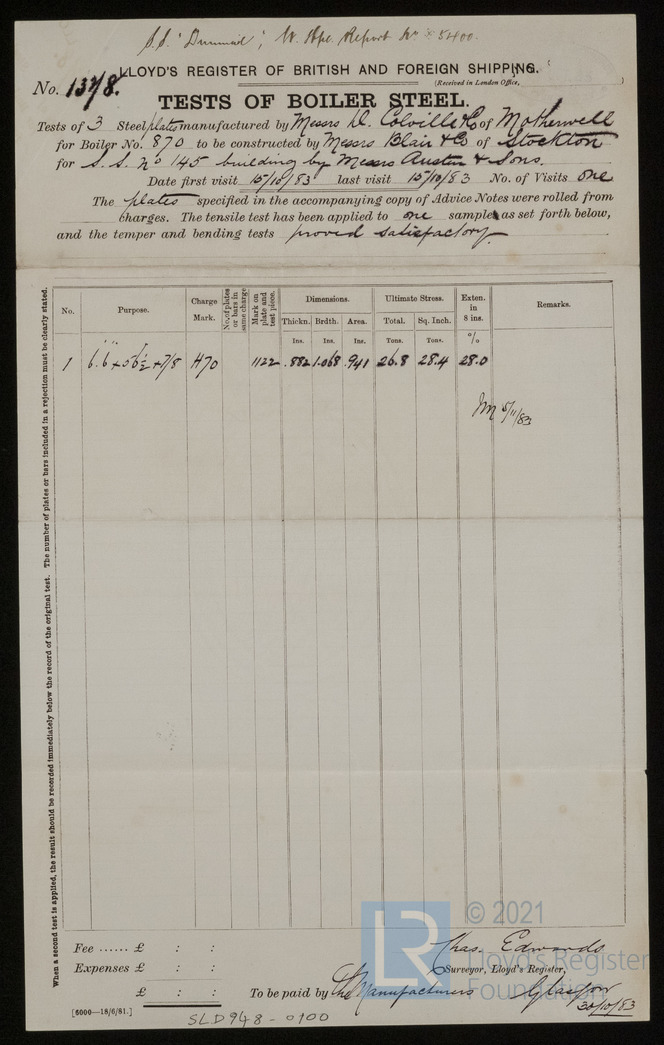 S.S. "Dunmail", W. Hpl. Report No 5400.
No. 1378.
LLOYD'S REGISTER OF BRITISH AND FOREIGN SHIPPING.
(Received in London Office,
TESTS OF BOILER STEEL.
Tests of 3 Steel plates manufactured by Messrs D. Colville & Co of Motherwell
for Boiler No. 870 to be constructed by Messrs Blair & Co of Stockton
for S.S. no 145 building by Messrs Austin & Sons.
Date first visit 15/10/83 last visit 15/10/83 No. of Visits one
The plates specified in the accompanying copy of Advice Notes were rolled from
charges. The tensile test has been applied to one samples as set forth below,
and the temper and bending tests proved satisfactory
When a second test is applied, the result should be recorded immediately below the record of the original test. The number of plates or bars included in a rejection must be clearly stated.
No. Purpose. Charge Mark. No. of plates or bars in same charge Mark on plate and test piece. Dimensions. Ultimate Stress. Exten. in 8 ins. Remarks.
Thickn. Brdth. Area. Total. Sq. Inch.
Ins. Ins. Ins. Tons. Tons. %
1 6.6 × 5 6½ × 7/8 H70 1122 .882 1.068 .941 26.8 28.4 28.0
5/11/83
© 2021
LR
Lloyd's Register
Foundation
Fee ...... £ : :
Chas. Edwards
Expenses £ : :
Surveyor, Lloyd's Register,
£ : :
To be paid by the Manufacturers
Glasgow
30/10/83
[6000—18/6/81.]
SLD948-0100